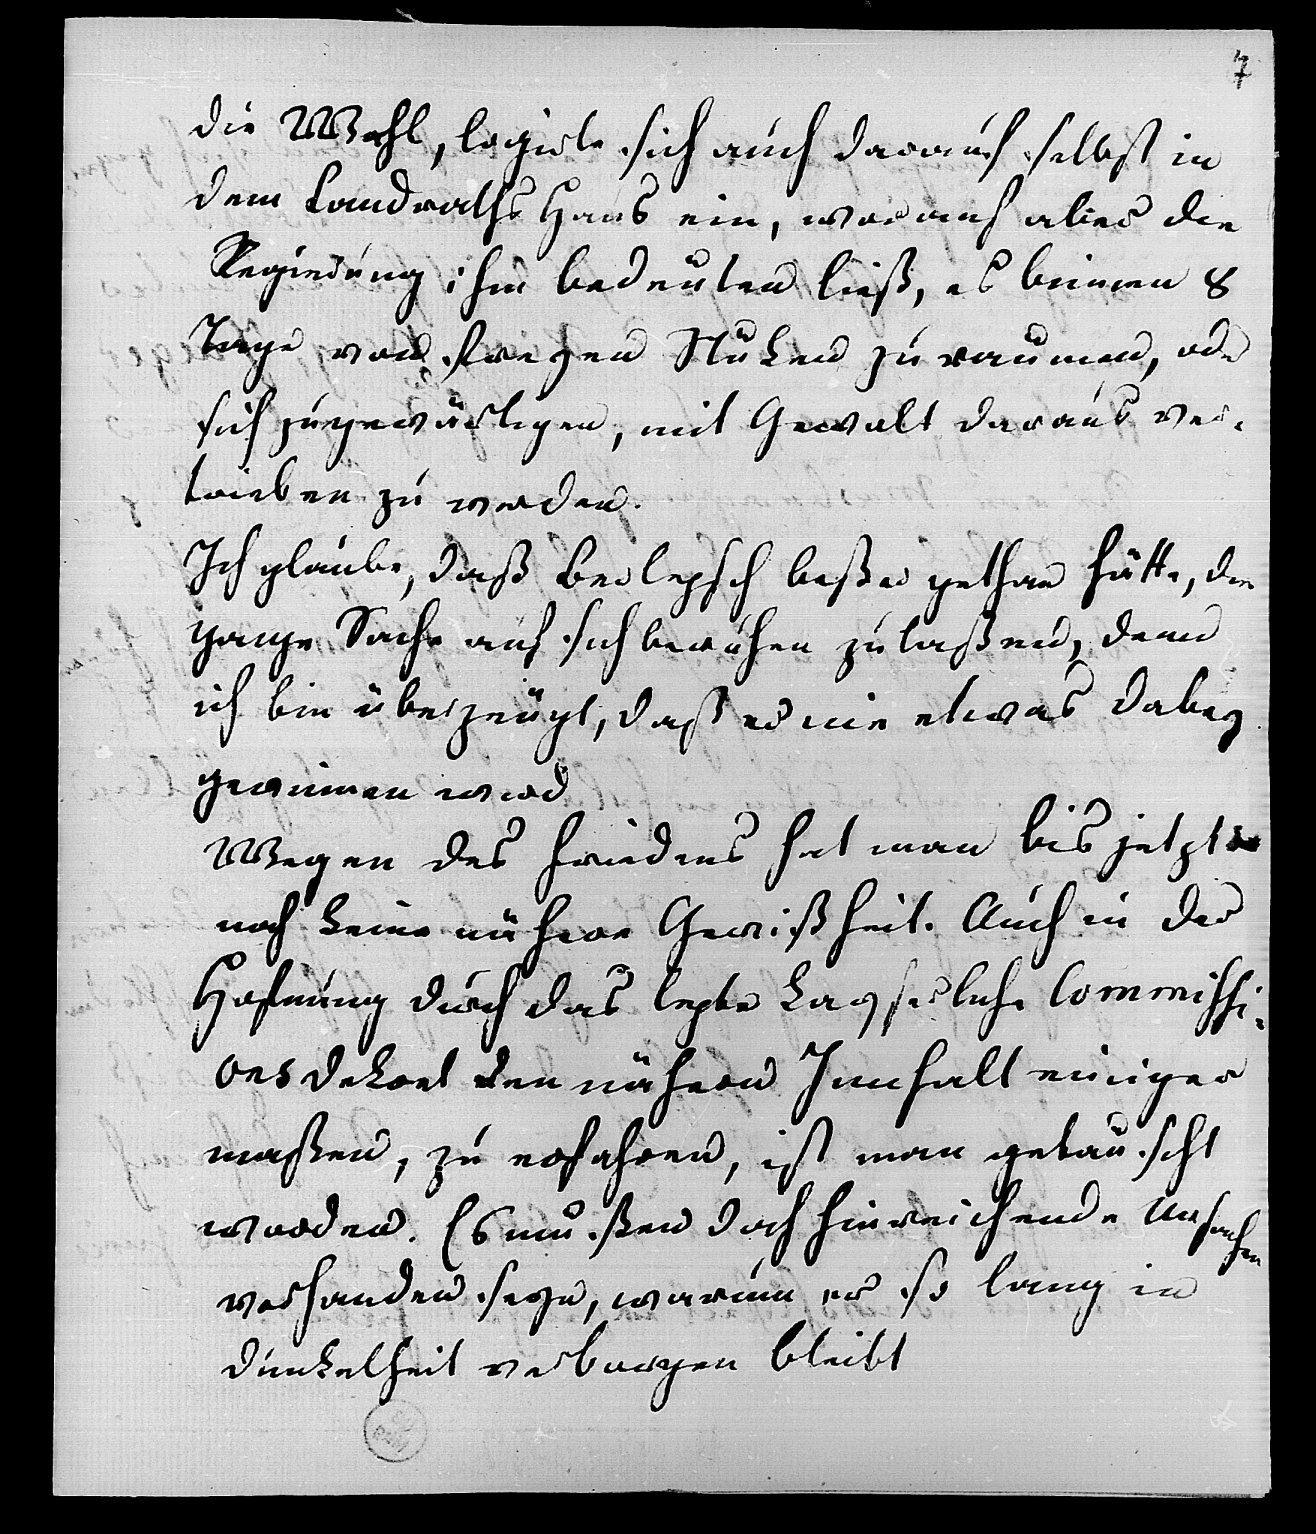 7
die Wahl, logirte sich auch darauf selbst in
dem Landraths Haus ein, worauf aber die
Regierung ihm bedeuten ließ, es binnen 8
Tage von freyen Stüken zu raumen, oder
sich zugewärtigen, mit Gewalt daraus ver-
trieben zu werden.
Ich glaube, daß Berlepsch beßer gethan hätte, die
ganze Sache auf sich beruhen zulaßen, denn
ich bin überzeugt, daß er nie etwas dabey
gewinnen wird
Wegen des Friedens hat man bis jetzt
noch keine nähere Gewißheit. Auch in der
Hofnung durch das lezte Kayserliche Commissi-
ons dekret den nähern Innhalt einiger
maßen, zu erfahren, ist man getäuscht
worden. Es müßen doch hinreichende Ursachen
vorhanden seyn, warum er so lang in
Dunkelheit verborgen bleibt